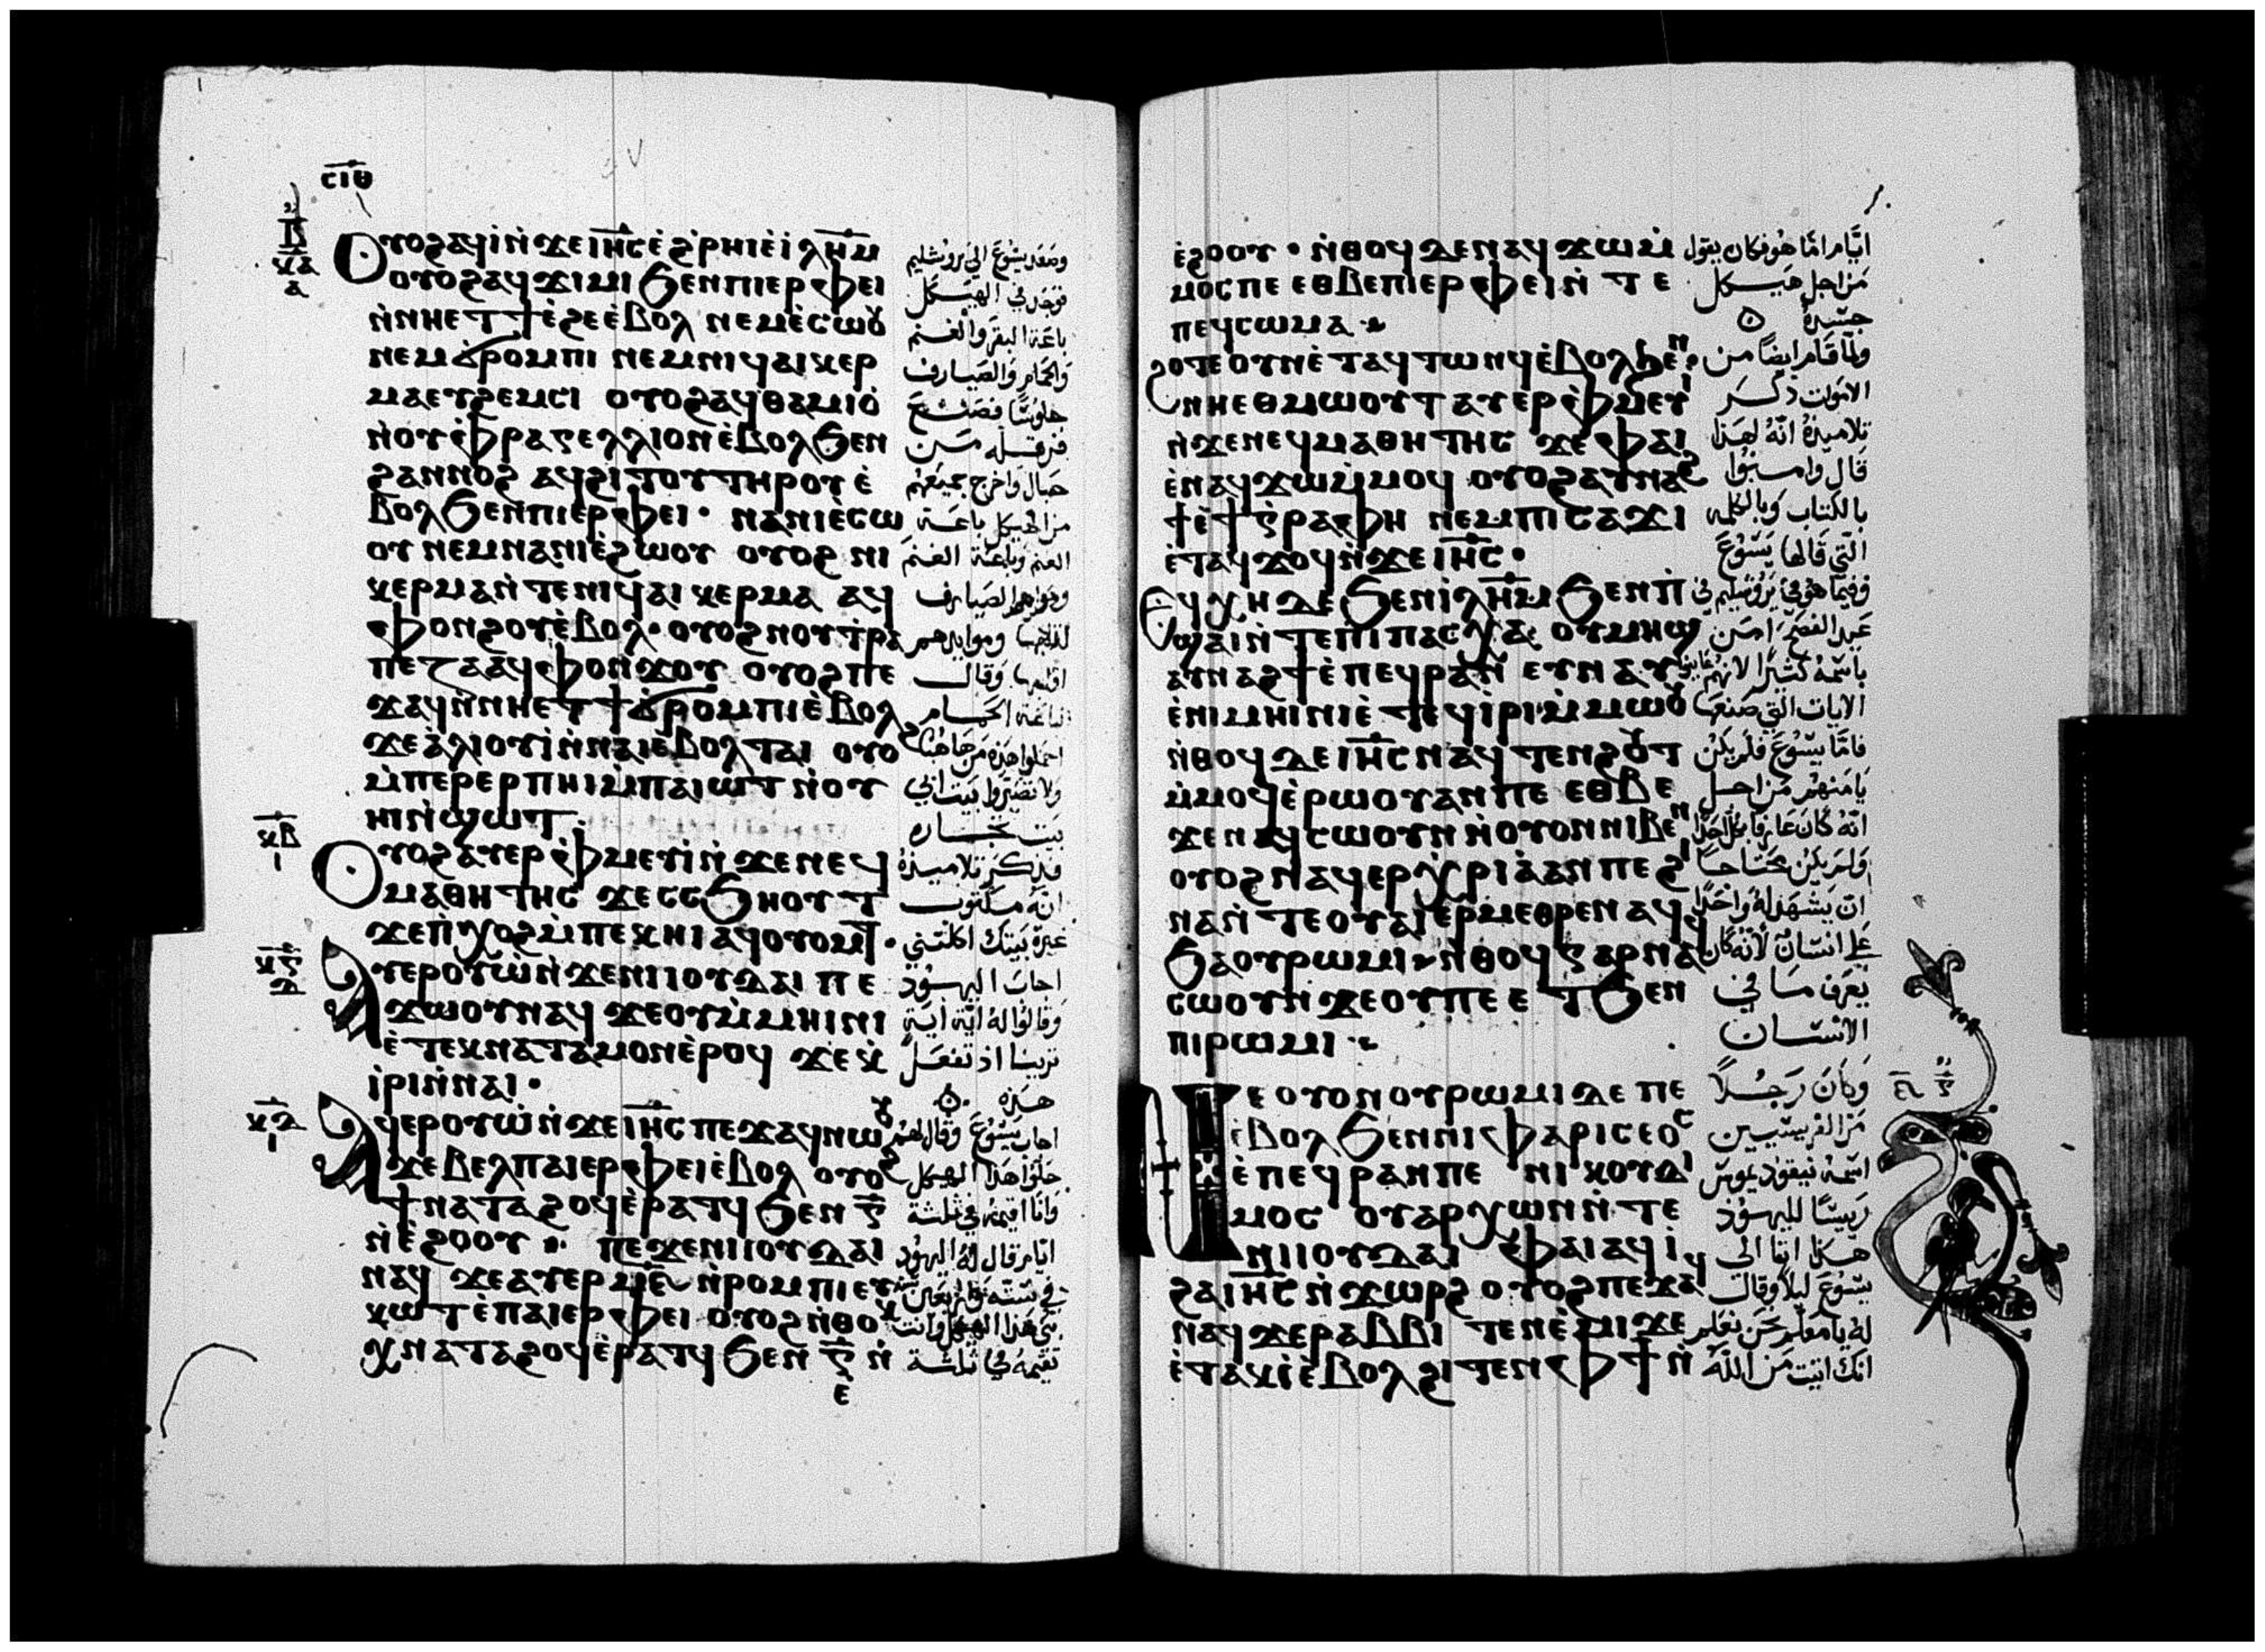 ⲥⲓⲑ
Ⲟⲩⲟϩ ⲁϥⲓ̀ ⲛ̀ϫⲉ ⲓⲏ̅ⲥ̅ ⲉ̀ϩ̀ⲣⲏⲓ ⲉ̀ⲓ̀ⲗⲏ̅ⲙ̅
ⲟⲩⲟϩ ⲁϥϫⲓⲙⲓ ϧⲉⲛ ⲡⲓⲉⲣⲫⲉⲓ
ⲛ̀ⲛⲏⲉⲧϯ ⲉ̀ϩⲉ ⲉ̀ⲃⲟⲗ ⲛⲉⲙ ⲉ̀ⲥⲱⲟⲩ
ⲛⲉⲙ ϭⲣⲟⲙⲡⲓ ⲛⲉⲙ ⲛⲓϥⲁⲓⲕⲉⲣ
ⲙⲁ ⲉⲩϩⲉⲙⲥⲓ ⲟⲩⲟϩ ⲁϥⲑⲁⲙⲓⲟ̀
ⲛ̀ⲟⲩⲉ̀ⲫⲣⲁⲅⲉⲗⲗⲓⲟⲛ ⲉ̀ⲃⲟⲗ ϧⲉⲛ
ϩⲁⲛⲛⲟϩ ⲁϥϩⲓⲧⲟⲩ ⲧⲏⲣⲟⲩ ⲉ̀
ⲃⲟⲗ ϧⲉⲛ ⲡⲓⲉⲣⲫⲉⲓ · ⲛⲁⲛⲓⲉ̀ⲥⲱ
ⲟⲩ ⲛⲉⲙ ⲛⲁⲛⲓⲉ̀ϩⲱⲟⲩ ⲟⲩⲟϩ ⲛⲓ
ⲕⲉⲣⲙⲁ ⲛ̀ⲧⲉ ⲛⲓϥⲁⲓⲕⲉⲣⲙⲁ ⲁϥ
ⲫⲟⲛϩⲟⲩ ⲉ̀ⲃⲟⲗ · ⲟⲩⲟϩ ⲛⲟⲩⲧ̀ⲣⲁ
ⲡⲉⲍⲁ ⲁϥⲫⲟⲛϫⲟⲩ ⲟⲩⲟϩ ⲡⲉ
ϫⲁϥ ⲛ̀ⲛⲏⲉⲧϯ ϭⲣⲟⲙⲡⲓ ⲉ̀ⲃⲟⲗ
ϫⲉ ⲁ̀ⲗⲓⲟⲩⲓ̀ ⲛ̀ⲛⲁⲓ ⲉ̀ⲃⲟⲗ ⲧⲁⲓ ⲟⲩⲟϩ
ⲙ̀ⲡⲉⲣⲉⲣ ⲡⲏⲓ ⲙ̀ⲡⲁⲓⲱⲧ ⲛ̀ⲟⲩ
ⲏⲓ ⲛ̀ϣⲱⲧ
Ⲟⲩⲟϩ ⲁⲩⲉⲣⲫⲙⲉⲩⲓ̀ ⲛ̀ϫⲉ ⲛⲉϥ
ⲙⲁⲑⲏⲧⲏⲥ ϫⲉ ⲥⲥϧⲏⲟⲩⲧ
ϫⲉ ⲡ̀ⲭⲟϩ ⲙ̀ⲡⲉⲕⲏⲓ ⲁϥⲟⲩⲟⲙⲧ ·
Ⲁⲩⲉⲣⲟⲩⲱ̀ ⲛ̀ϫⲉ ⲛⲓⲓⲟⲩⲇⲁⲓ ⲡⲉ
ϫⲱⲟⲩ ⲛⲁϥ ϫⲉ ⲟⲩ ⲙ̀ⲙⲏⲓⲛⲓ
ⲉ̀ⲧⲉⲕⲛⲁⲧⲁⲙⲟⲛ ⲉ̀ⲣⲟϥ ϫⲉ ⲕ̀
ⲓ̀ⲣⲓ ⲛ̀ⲛⲁⲓ ·
Ⲁϥⲉⲣⲟⲩⲱ̀ ⲛ̀ϫⲉ ⲓⲏ̅ⲥ̅ ⲡⲉϫⲁϥ ⲛⲱⲟⲩ
ϫⲉ ⲃⲉⲗ ⲡⲁⲓⲉⲣⲫⲉⲓ ⲉ̀ⲃⲟⲗ ⲟⲩⲟϩ
ϯⲛⲁⲧⲁϩⲟϥ ⲉ̀ⲣⲁⲧϥ ϧⲉⲛ ⲅ̅
ⲛ̀ⲉ̀ϩⲟⲟⲩ · ⲡⲉϫⲉ ⲛⲓⲓⲟⲩⲇⲁⲓ
ⲛⲁϥ ϫⲉ ⲁⲩⲉⲣ ⲙ̅ⲋ̅ ⲛ̀ⲣⲟⲙⲡⲓ ⲉⲩ
ⲕⲱⲧ ⲉ̀ⲡⲁⲓⲉⲣⲫⲉⲓ ⲟⲩⲟϩ ⲛ̀ⲑⲟⲕ
ⲭⲛⲁⲧⲁϩⲟϥ ⲉ̀ⲣⲁⲧϥ ϧⲉⲛ ⲅ̅ ⲛ̀
ⲉ̀
وصعد يشوع الي يروشليم
فوجد في الهيكل
باعة البقر والغنم
والحمام والصيارف
جلوسًا فصنع
فرقله من
حبال واخرج جميعهم
من الهيكل باعة
الغنم وباعة الغنم
ودراهم الصيارف
وموايدهم
وقال
لباعة الحمام
احملوا هذه من هاهنا
ولا تصيروا بيت ابي
بيت تجاره
فذكر تلاميذه
انه مكتوب
غيرة بيتك اكلتني
اجاب اليهود
وقالوا له اية اية
ترينا اذ تفعل
هذه
اجاب يشوع وقال لهم
حلوا هذا الهيكل
وانا اقيمه في ثلثة
ايام قال له اليهود
بني هذا الهيكل وانت
تقيمه في ثلثة
ⲉ̀ϩⲟⲟⲩ · ⲛ̀ⲑⲟϥ ⲇⲉ ⲛⲁϥϫⲱ ⲙ̀
ⲙⲟⲥ ⲡⲉ ⲉⲑⲃⲉ ⲡⲓⲉⲣⲫⲉⲓ ⲛ̀ⲧⲉ
ⲡⲉϥⲥⲱⲙⲁ
ϩⲟⲧⲉ ⲟⲩⲛ ⲉ̀ⲧⲁϥⲧⲱⲛϥ ⲉ̀ⲃⲟⲗ ϧⲉⲛ
ⲛⲏⲉⲑⲙⲱⲟⲩⲧ ⲁⲩⲉⲣⲫⲙⲉⲩⲓ
ⲛ̀ϫⲉ ⲛⲉϥⲙⲁⲑⲏⲧⲏⲥ ϫⲉ ⲫⲁⲓ
ⲉ̀ⲛⲁϥϫⲱ ⲙ̀ⲙⲟϥ ⲟⲩⲟϩ ⲁⲩⲛⲁϩ
ϯ ⲉ̀ϯⲅ̀ⲣⲁⲫⲏ ⲛⲉⲙ ⲡⲓⲥⲁϫⲓ
ⲉ̀ⲧⲁϥϫⲟϥ ⲛ̀ϫⲉ ⲓⲏ̅ⲥ̅ ·
Ⲉϥⲭⲏ ⲇⲉ ϧⲉⲛ ⲓ̀ⲗⲏ̅ⲙ̅ ϧⲉⲛ ⲡ̀
ϣⲁⲓ ⲛ̀ⲧⲉ ⲡⲓⲡⲁⲥⲭⲁ ⲟⲩⲙⲏϣ
ⲁⲩⲛⲁϩϯ ⲉ̀ⲡⲉϥⲣⲁⲛ ⲉⲩⲛⲁⲩ
ⲉ̀ⲛⲓⲙⲏⲓⲛⲓ ⲉ̀ⲧⲉϥⲓ̀ⲣⲓ ⲙ̀ⲙⲱⲟⲩ
ⲛ̀ⲑⲟϥ ⲇⲉ ⲓⲏ̅ⲥ̅ ⲛⲁϥⲧⲉⲛϩⲟⲩⲧ
ⲙ̀ⲙⲟϥ ⲉ̀ⲣⲱⲟⲩ ⲁⲛ ⲡⲉ ⲉⲑⲃⲉ
ϫⲉ ⲛⲁϥⲥⲱⲟⲩⲛ ⲛ̀ⲟⲩⲟⲛ ⲛⲓⲃⲉⲛ
ⲟⲩⲟϩ ⲛⲁϥⲉⲣⲭ̀ⲣⲓⲁ̀ ⲁⲛ ⲡⲉ ϩⲓ
ⲛⲁ ⲛ̀ⲧⲉ ⲟⲩⲁⲓ ⲉⲣⲙⲉⲑⲣⲉ ⲛⲁϥ
ϧⲁ ⲟⲩⲣⲱⲙⲓ ⲛ̀ⲑⲟϥ ⲅⲁⲣ ⲛⲁϥ
ⲥⲱⲟⲩⲛ ϫⲉ ⲟⲩ ⲡⲉⲉⲧϧⲉⲛ
ⲡⲓⲣⲱⲙⲓ
Ⲛⲉ ⲟⲩⲟⲛ ⲟⲩⲣⲱⲙⲓ ⲇⲉ ⲡⲉ
ⲉ̀ⲃⲟⲗ ϧⲉⲛ ⲛⲓⲫⲁⲣⲓⲥⲉⲟⲥ
ⲉ̀ⲡⲉϥⲣⲁⲛ ⲡⲉ ⲛⲓⲕⲟⲩⲇⲓ
ⲙⲟⲥ ⲟⲩⲁⲣⲭⲱⲛ ⲛ̀ⲧⲉ
ⲛⲓⲓⲟⲩⲇⲁⲓ ⲫⲁⲓ ⲁϥⲓ̀
ϩⲁ ⲓⲏ̅ⲥ̅ ⲛ̀ϫⲱⲣϩ ⲟⲩⲟϩ ⲡⲉϫⲁϥ
ⲛⲁϥ ϫⲉ ⲣⲁⲃⲃⲓ ⲧⲉⲛⲉ̀ⲙⲓ ϫⲉ
ⲉ̀ⲧⲁⲕⲓ̀ ⲉ̀ⲃⲟⲗ ϩⲓⲧⲉⲛ ⲫϯ ⲛ̀
ايام اما هو فكان يقول
من اجل هيكل
جسده
ولما قام ايضًا من
الاموات ذكر
تلاميذه انه لهذا
قال وامنوا
بالكتاب وبالكلمه
التي قالها يسوع
وفيما هو في يروشليم في
عيد الفصح امن
باسمه كثيرًا لانهم عاينوا
الايات التي صنعها
فاما يشوع فلم يكن
يامنهم من اجل
انه كان عارفا بكل احدًا
ولم يكن محتاجا
ان يشهد له واحدًا
علي انسان لانه كان
يعرف ما في
الانسان
وكان رجلاً
من الفريسيين
اسمه نيقوديموس
رييسًا لليهود
هذا اتا الى
يشوع ليلاً وقال
له يا معلم نحن نعلم
انك اتيت من الله